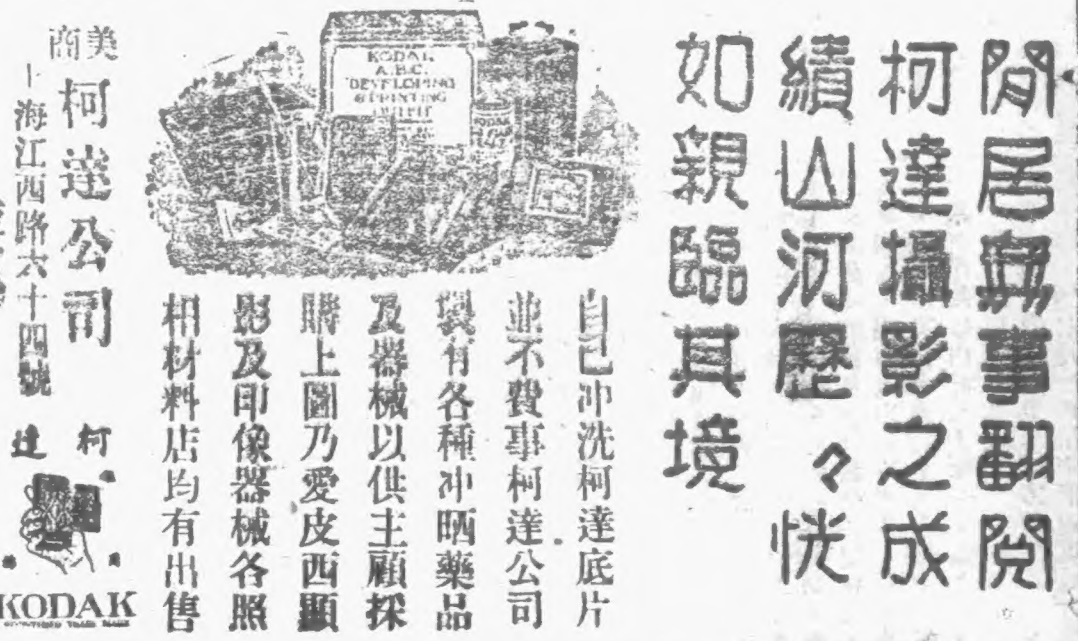 閒居無事翻閱
柯達攝影之成
績山河歷々恍
如親臨其境
KODAK
A.B.C.
DEVELOPING
& PRINTING
OUTFIT
KODAK
自己冲洗柯達底片
並不費事柯達公司
製有各種冲晒藥品
及器械以供主顧採
購上圖乃愛皮西顯
影及印像器械各照
相材料店均有出售
美商
柯達公司
海江西路六十四號
柯達
KODAK